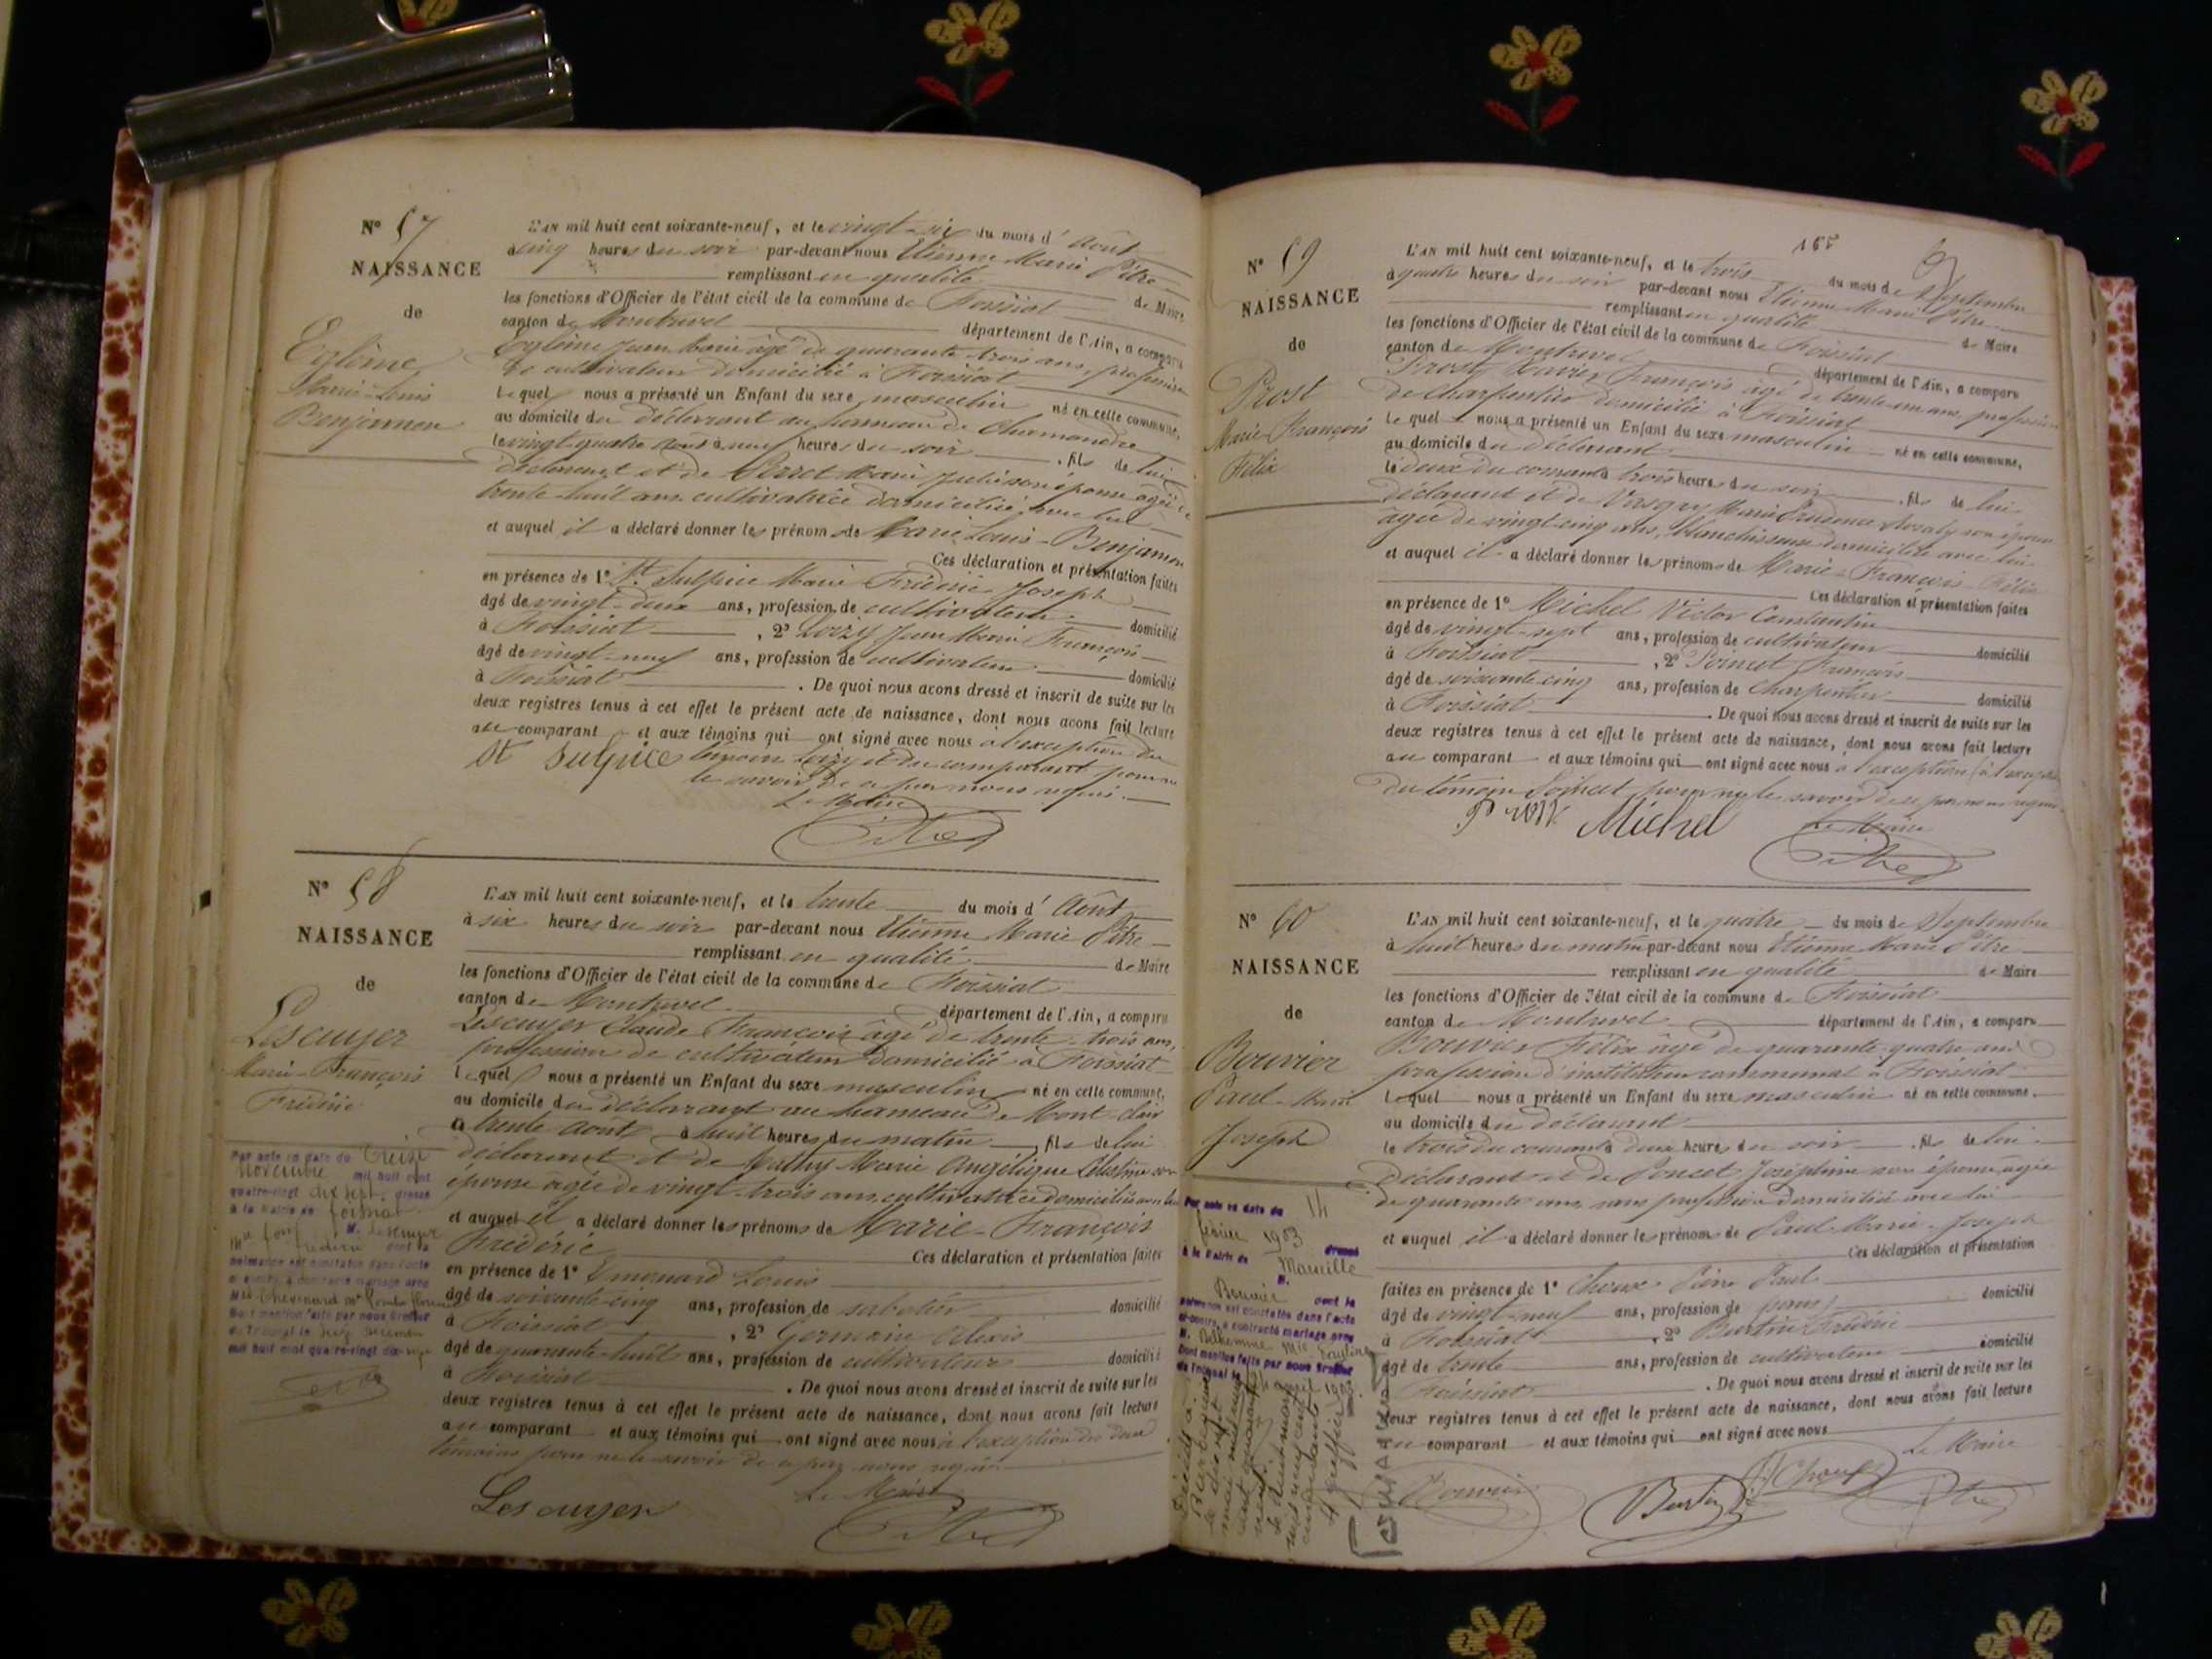 N° 57
NAISSANCE
de
Eglème
Marie-Louis
Benjamen
L'AN mil huit cent soixante-neuf, et le vingt-six du mois d'Août
à cinq heures du soir par-devant nous Etienne Marie Pitre
remplissant en qualité de Maire
les fonctions d'Officier de l'état civil de la commune de Foissiat
canton de Montrevel département de l'Ain, a comparu
Eglème Jean Marie âgé de quarante-trois ans, profession
de cultivateur domicilié à Foissiat
lequel nous a présenté un Enfant du sexe masculin né en cette commune,
au domicile du déclarant au hameau de
le vingt-quatre août à neuf heures du soir, fils de lui
déclarant et de Perret Marie Julie son épouse âgée de
trente-huit ans cultivatrice domiciliée avec lui
et auquel il a déclaré donner les prénoms de Marie Louis-Benjamen
Ces déclaration et présentation faites
en présence de 1° St Sulpice Marie Frédéric Joseph
âgé de vingt-deux ans, profession de cultivateur domicilié
à Foissiat, 2° Loizy Jean Marie François
âgé de vingt-neuf ans, profession de cultivateur domicilié
à Foissiat. De quoi nous avons dressé et inscrit de suite sur les
deux registres tenus à cet effet le présent acte de naissance, dont nous avons fait lecture
au comparant et aux témoins qui ont signé avec nous à l'exception du
St Sulpice témoin Loizy et du comparant pour ne
le savoir de ce par nous requis.
Le Maire
Pitre
N° 58
NAISSANCE
de
Lescuyer
Marie-François
Frédéric
Par acte en date du treize
novembre mil huit cent
quatre-vingt dix sept, dressé
à la Mairie de Foissiat
M. Lescuyer
Mie fois Frédéric dont la
naissance est constatée dans l'acte
ci-contre, a contracté mariage avec
Mlle Chevenard
Dont mention faite par nous Greffier
du Tribunal le
mil huit cent quatre-vingt dix-sept
L'AN mil huit cent soixante-neuf, et le trente du mois d'Août
à six heures du soir par-devant nous Etienne Marie Pitre
remplissant en qualité de Maire
les fonctions d'Officier de l'état civil de la commune de Foissiat
canton de Montrevel département de l'Ain, a comparu
Lescuyer Claude François âgé de trente-trois ans,
profession de cultivateur domicilié à Foissiat
lequel nous a présenté un Enfant du sexe masculin né en cette commune,
au domicile du déclarant au hameau de Mont-clair
le trente Août à huit heures du matin, fils de lui
déclarant et de Mathy Marie Angélique Célestine son
épouse âgée de vingt-trois ans cultivatrice domiciliée avec lui
et auquel il a déclaré donner les prénoms de Marie-François
Frédéric Ces déclaration et présentation faites
en présence de 1° Emonard Louis
âgé de soixante-cinq ans, profession de sabotier domicilié
à Foissiat, 2° Germain Alexis
âgé de quarante-huit ans, profession de cultivateur domicilié
à Foissiat. De quoi nous avons dressé et inscrit de suite sur les
deux registres tenus à cet effet le présent acte de naissance, dont nous avons fait lecture
au comparant et aux témoins qui ont signé avec nous à l'exception des deux
témoins pour ne le savoir de ce par nous requis.
Lescuyer
Le Maire
Pitre
165
N° 59
NAISSANCE
de
Prost
Marie-François
Félix
L'AN mil huit cent soixante-neuf, et le trois du mois de Septembre
à quatre heures du soir par-devant nous Etienne Marie Pitre
remplissant en qualité de Maire
les fonctions d'Officier de l'état civil de la commune de Foissiat
canton de Montrevel département de l'Ain, a comparu
Prost Xavier François âgé de trente-un ans, profession
de charpentier domicilié à Foissiat
lequel nous a présenté un Enfant du sexe masculin né en cette commune,
au domicile du déclarant
le deux du courant à trois heures du soir, fils de lui
déclarant et de Marie Prudence son épouse
âgée de vingt-cinq ans, blanchisseuse domiciliée avec lui
et auquel il a déclaré donner les prénoms de Marie-François-Félix
Ces déclaration et présentation faites
en présence de 1° Michel Victor Constantin
âgé de vingt-sept ans, profession de cultivateur domicilié
à Foissiat, 2° François
âgé de soixante cinq ans, profession de charpentier domicilié
à Foissiat. De quoi nous avons dressé et inscrit de suite sur les
deux registres tenus à cet effet le présent acte de naissance, dont nous avons fait lecture
au comparant et aux témoins qui ont signé avec nous à l'exception (à l'exception
du témoin pour ne le savoir de ce par nous requis.
Prost Michel
Le Maire
Pitre
N° 60
NAISSANCE
de
Bouvier
Paul-Marie
Joseph
Par acte en date du 14
février 1903 dressé
à la Mairie de Marseille
M.
Bouvier dont la
naissance est constatée dans l'acte
ci-contre, a contracté mariage avec
M. Mie Pauline
Dont mention faite par nous Greffier
du Tribunal le
L'AN mil huit cent soixante-neuf, et le quatre du mois de Septembre
à huit heures du matin par-devant nous Etienne Marie Pitre
remplissant en qualité de Maire
les fonctions d'Officier de l'état civil de la commune de Foissiat
canton de Montrevel département de l'Ain, a comparu
Bouvier Félix âgé de quarante-quatre ans
profession d'instituteur communal à Foissiat
lequel nous a présenté un Enfant du sexe masculin né en cette commune,
au domicile du déclarant
le trois du courant à deux heures du soir, fils de lui
déclarant et de Poncet Joséphine son épouse âgée
de quarante ans sans profession domiciliée avec lui
et auquel il a déclaré donner les prénoms de Paul-Marie-Joseph
Ces déclaration et présentation
faites en présence de 1° Choux Pierre Paul domicilié
âgé de vingt-neuf ans, profession de
à Foissiat, 2° Burtin Frédéric domicilié
âgé de trente ans, profession de cultivateur
à Foissiat. De quoi nous avons dressé et inscrit de suite sur les
deux registres tenus à cet effet le présent acte de naissance, dont nous avons fait lecture
au comparant et aux témoins qui ont signé avec nous
Le Maire
Bouvier Burtin Choux Pitre